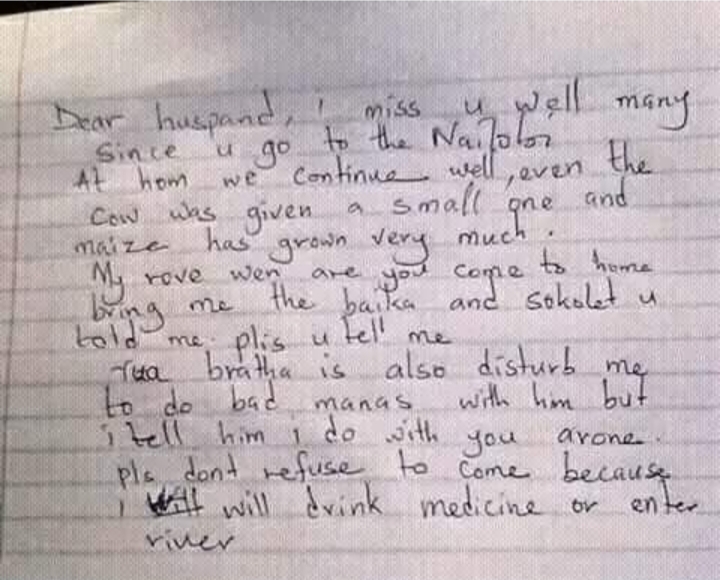 Dear huspand, i miss u well many
Since u go to the Nailobi
At hom we continue well, even the
Cow was given a small one and
maize has grown very much.
My rove wen are you come to home
bring me the baika and sokolet u
told me. plis u tell me
Yua bratha is also disturb me
to do bad manas with him but
i tell him i do with you arone.
pls dont refuse to come because
i will drink medicine or enter
river